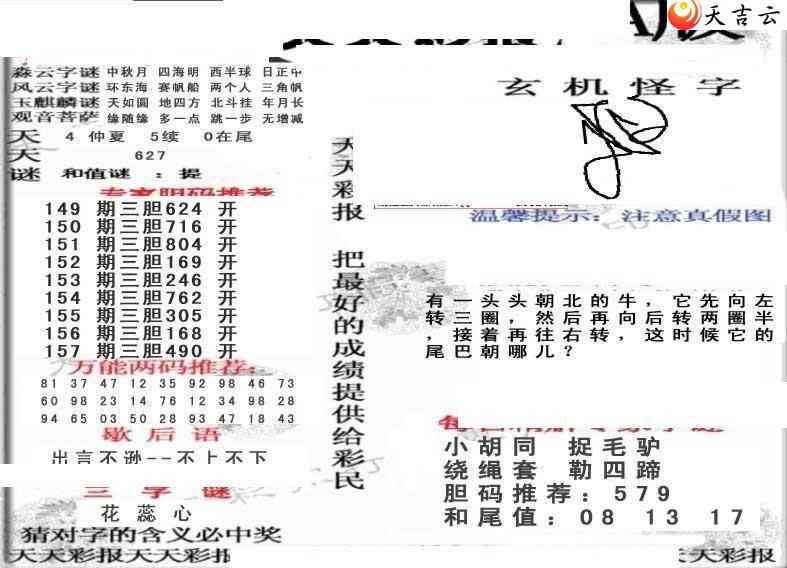 天吉云
淼云字谜 中秋月 四海明 西半球 日正中
风云字谜 环东海 赛帆船 两个人 三角帆
玉麒麟谜 天如圆 地四方 北斗挂 年月长
观音菩萨 缘随缘 多一点 跳一步 无增减
天 4 仲夏 5续 0在尾
天 627
谜 和值谜 : 提
专家胆码推荐
149 期三胆624 开
150 期三胆716 开
151 期三胆804 开
152 期三胆169 开
153 期三胆246 开
154 期三胆762 开
155 期三胆305 开
156 期三胆168 开
157 期三胆490 开
万能两码推荐:
81 37 47 12 35 92 98 46 73
60 98 23 14 76 12 34 98 28
94 65 03 50 28 93 47 18 43
歇后语
出言不逊--不上不下
三字谜
花蕊心
猜对字的含义必中奖
天天彩报天天彩报
天天彩报 把最好的成绩提供给彩民
玄机怪字
温馨提示: 注意真假图
有一头头朝北的牛，它先向左
转三圈，然后再向后转两圈半
，接着再往右转，这时候它的
尾巴朝哪儿？
小胡同 捉毛驴
绕绳套 勒四蹄
胆码推荐：579
和尾值：08 13 17
天天彩报